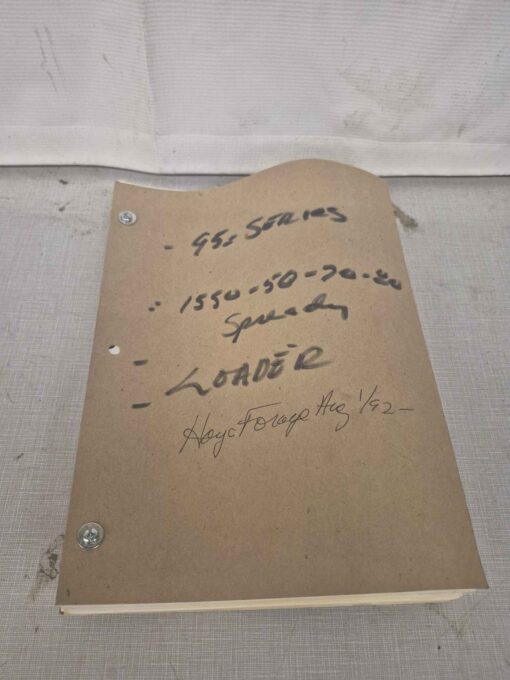 - 95: SERIES
: 1550-50-70-80
Spready
- 
- LOADER
Hay & Forage Aug 1/92-